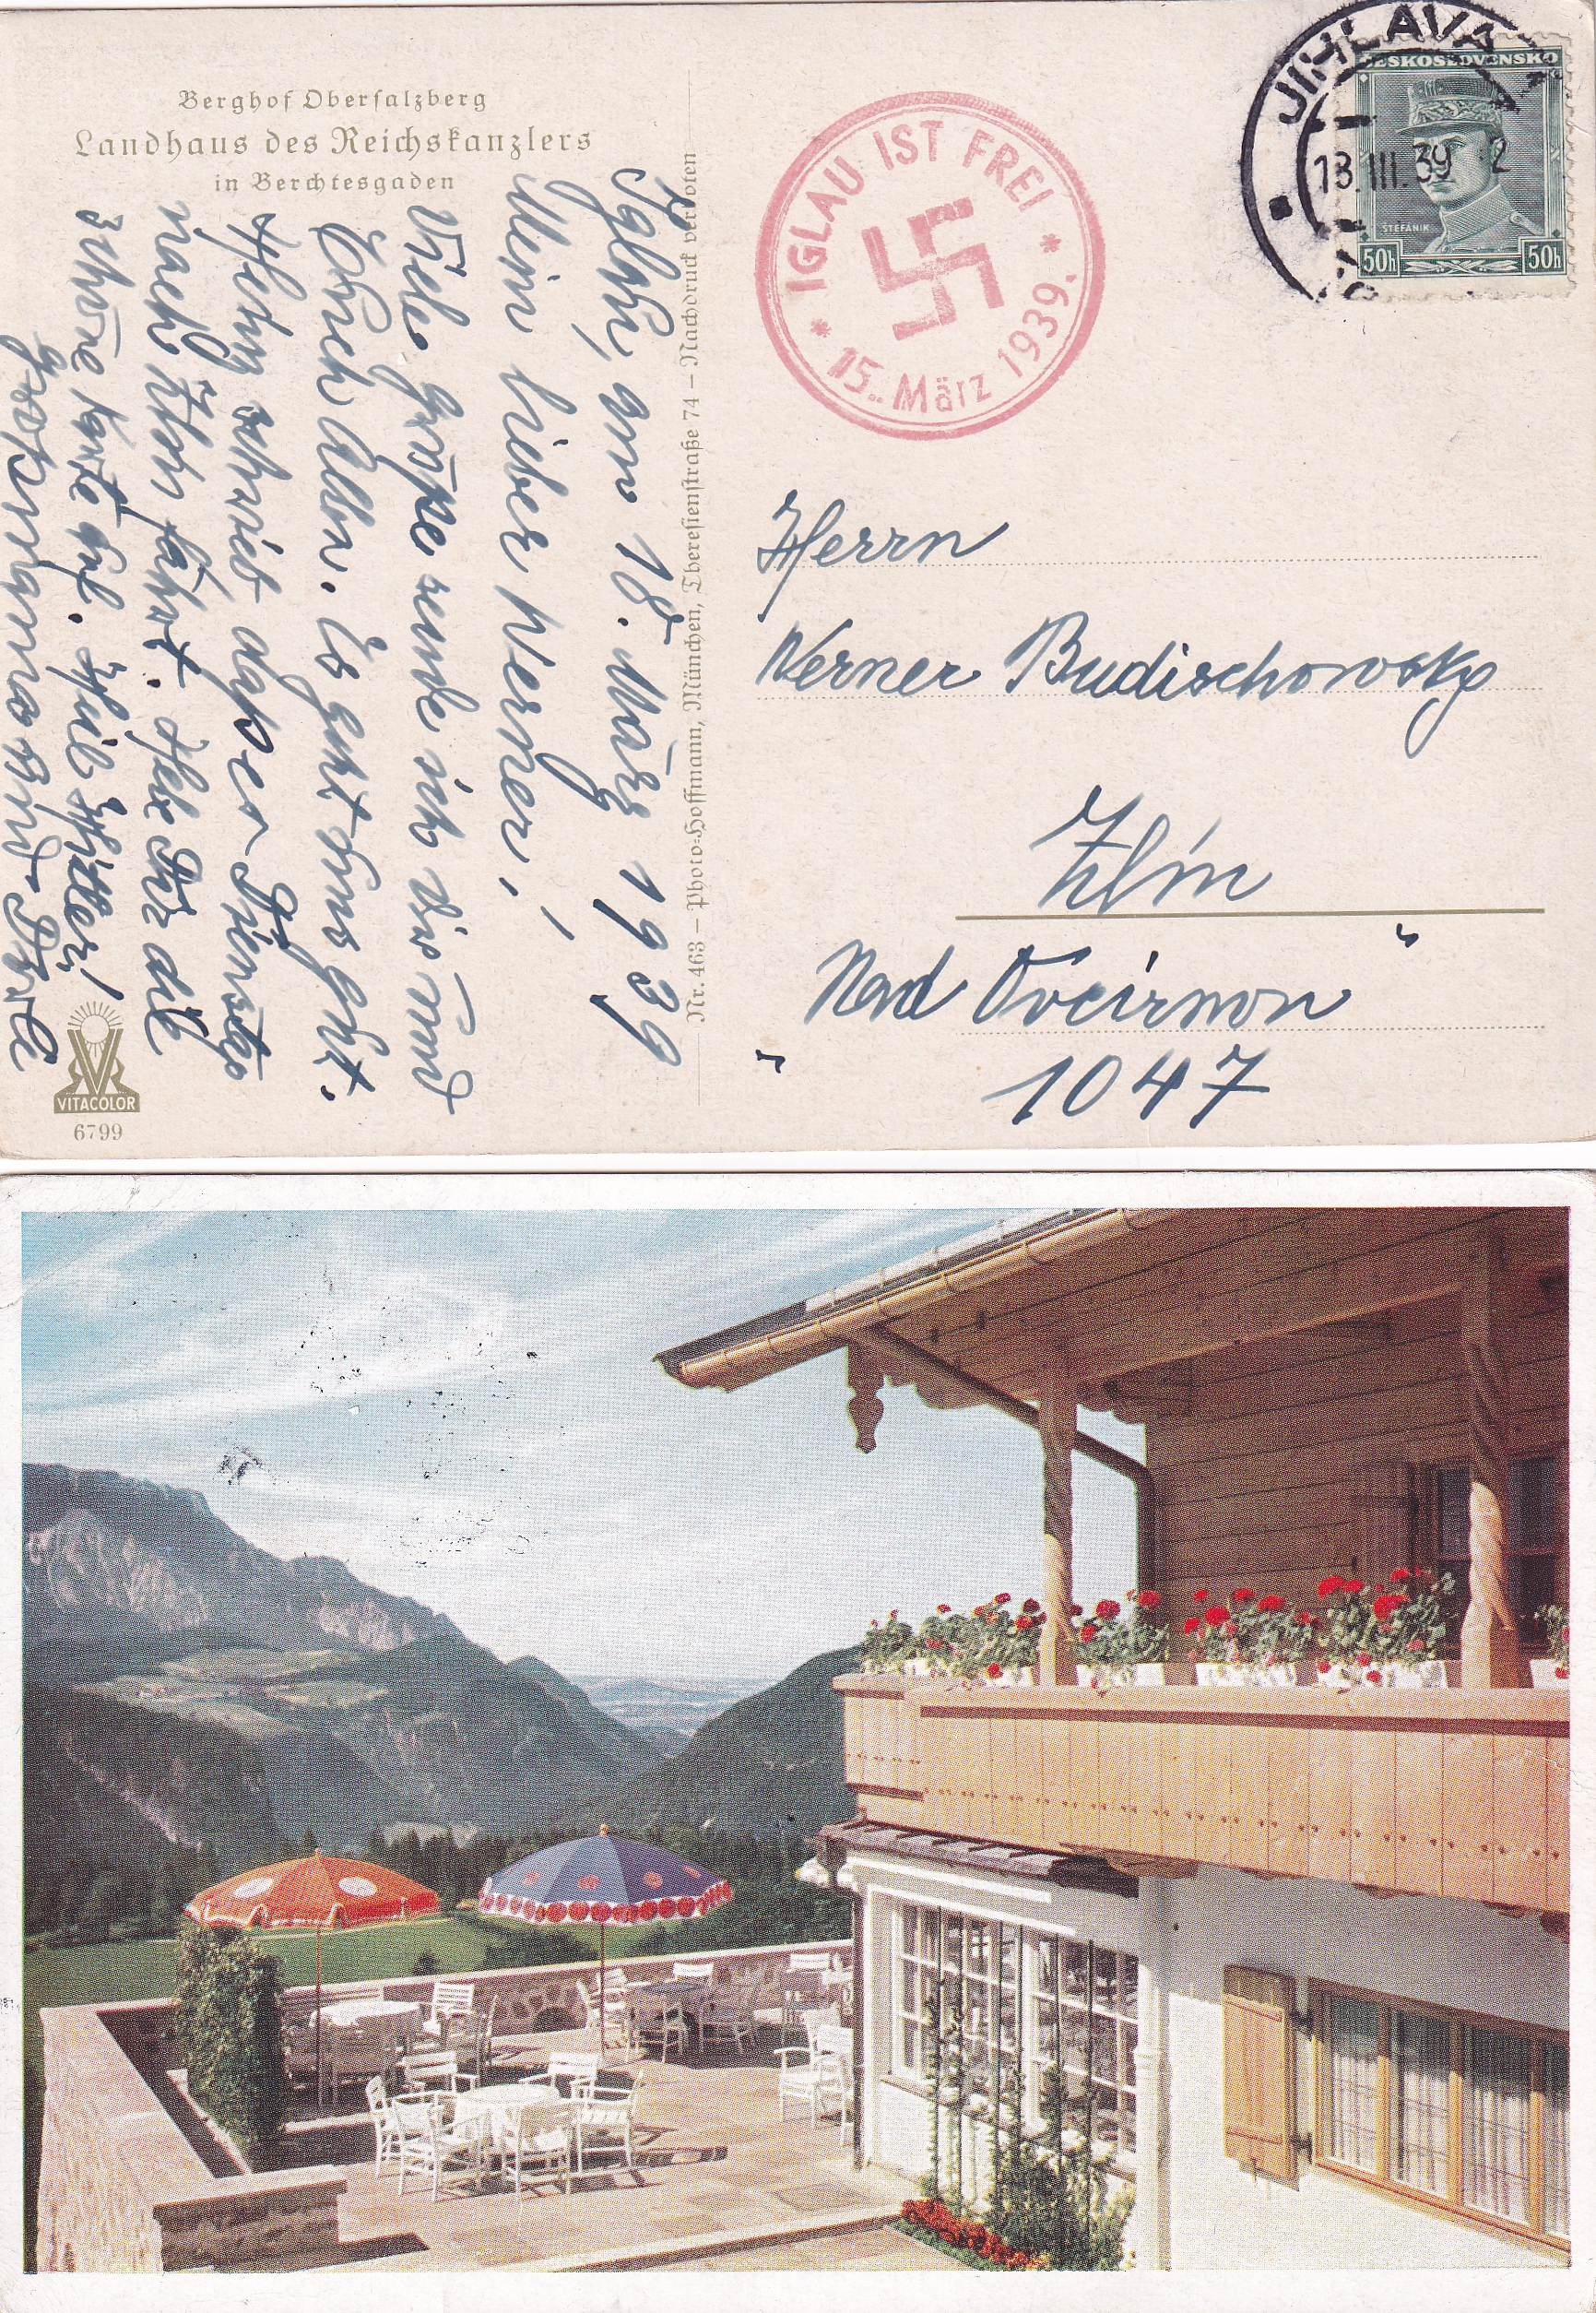 Berghof Obersalzberg
Landhaus des Reichskanzlers
in Berchtesgaden
Iglau, am 18. März 1939
Mein lieber Werner!
Viele Grüße sende ich Dir und
Erich Alln. Es geht uns gut.
Herq schrieb, daß er Dienstag
nach Zlin fährt. Hebe Dir die
schöne Karte auf. Heil Hitler!
Großmama und Dole
VITACOLOR
6799
Nr. 463 – Photo-Hoffmann, München, Theresienstraße 74 – Nachdruck verboten
IGLAU IST FREI
15. März 1939.
JIHLAVA 2
18.III.39
ČESKOSLOVENSKO
ŠTEFÁNIK
50h 50h
Herrn
Werner Budischowsky
Zlin
Nad Ovčirnon
1047